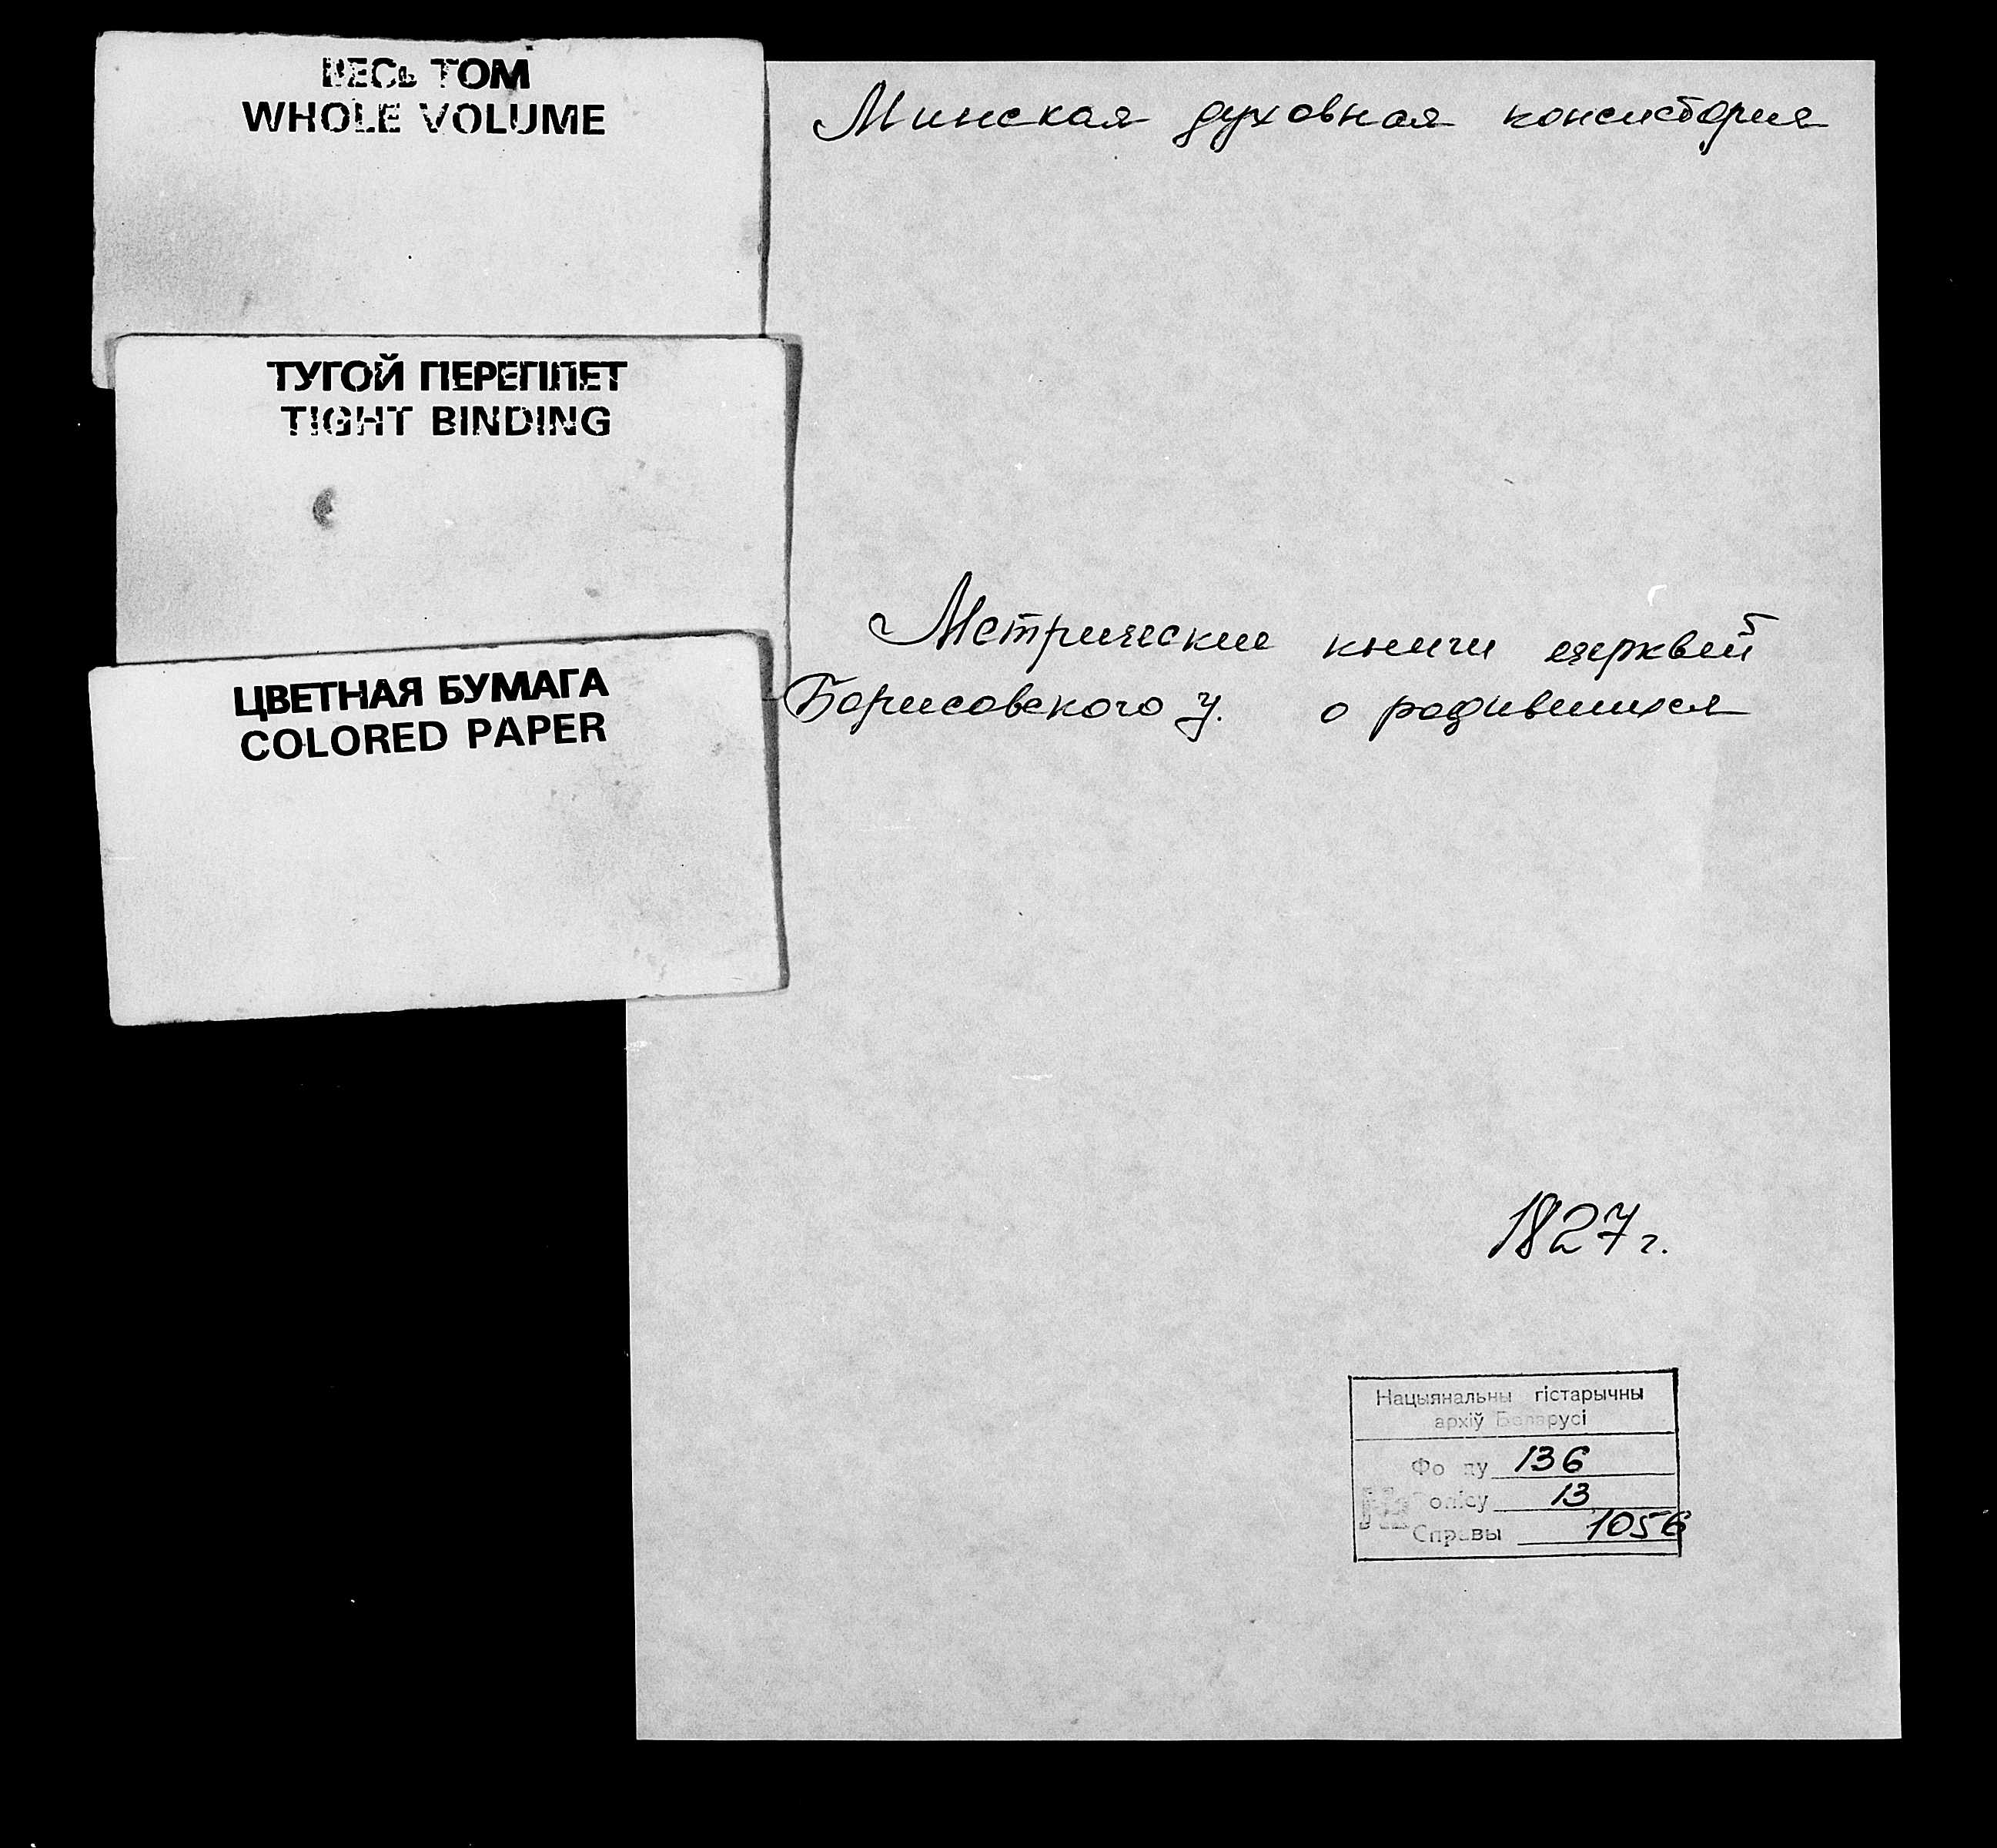 ВЕСЬ ТОМ
WHOLE VOLUME
ТУГОЙ ПЕРЕПЛЕТ
TIGHT BINDING
ЦВЕТНАЯ БУМАГА
COLORED PAPER
Минская духовная консистория
Метрические книги церквей
Борисовского у. о родившихся
1827 г.
Нацыянальны гістарычны
архіў Беларусі
Фонду 136
Вопісу 13
№ Справы 1056